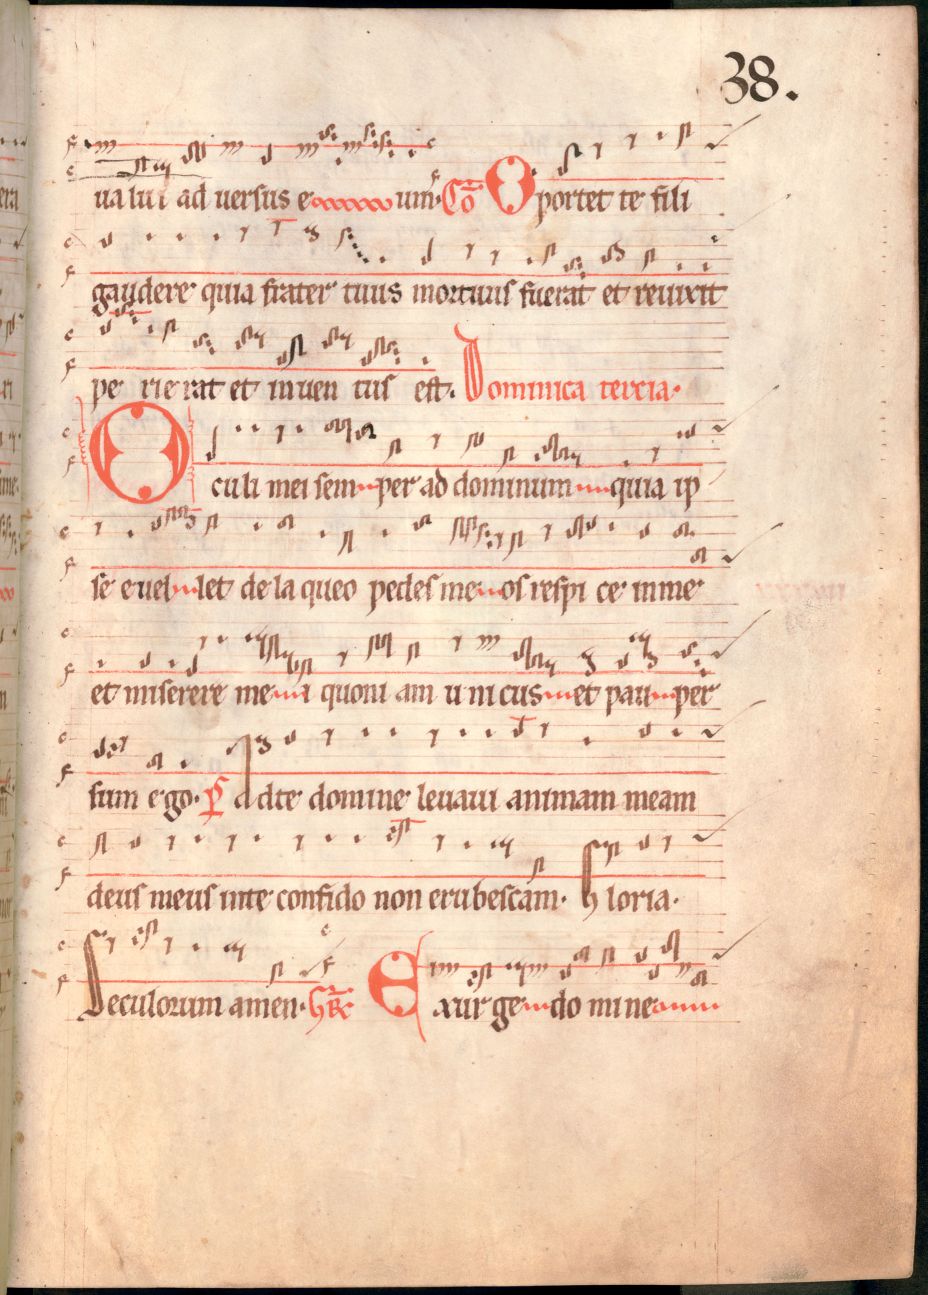 38.
ualui ad uersus e um. Cō Oportet te fili
gaudere quia frater tuus mortuus fuerat et reuixit
pe rierat et inuen tus est. Dominica tercia.
Oculi mei sem per ad dominum quia ip
se euel let de la queo pedes me os respi ce in me
et miserere me i quoni am u ni cus et pau per
sum ego. ps Ad te domine leuaui animam meam
deus meus in te confido non erubescam. Gloria.
Seculorum amen. Gr Exur ge do mi ne